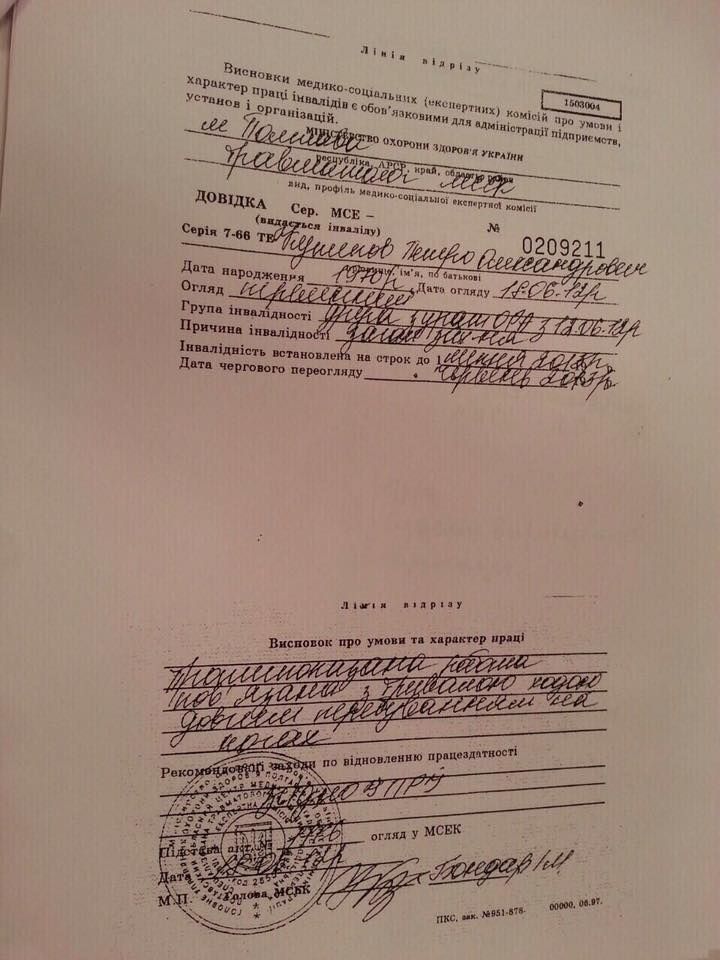 Лінія відрізу
1503004
Висновки медико-соціальних (експертних) комісій про умови і
характер праці інвалідів є обов'язковими для адміністрації підприємств,
установ і організацій.
МІНІСТЕРСТВО ОХОРОНИ ЗДОРОВ'Я УКРАЇНИ
м Полтава
республіка, АРСР, край, область, район
травматолог МСЕК
вид, профіль медико-соціальної експертної комісії
ДОВІДКА Сер. МСЕ – №
(видається інваліду) 0209211
Серія 7-66 ТЕ Петро Олександрович
ім'я, по батькові
Дата народження 1970р. Дата огляду 18.06.12р
Огляд первинний
Група інвалідності з 12.06.12р
Причина інвалідності загал
Інвалідність встановлена на строк до 1 липня 2013р.
Дата чергового переогляду червень 2013р
Лінія відрізу
Висновок про умови та характер праці
Протипоказана робота
пов'язана з тривалою ходою
довгим перебуванням на
ногах
Рекомендовані заходи по відновленню працездатності
Підстава: акт № огляд у МСЕК
Дата
М.П. Голова МСЕК Бондар І М
ПКС, зак. №951-878- 00000, 06.97.